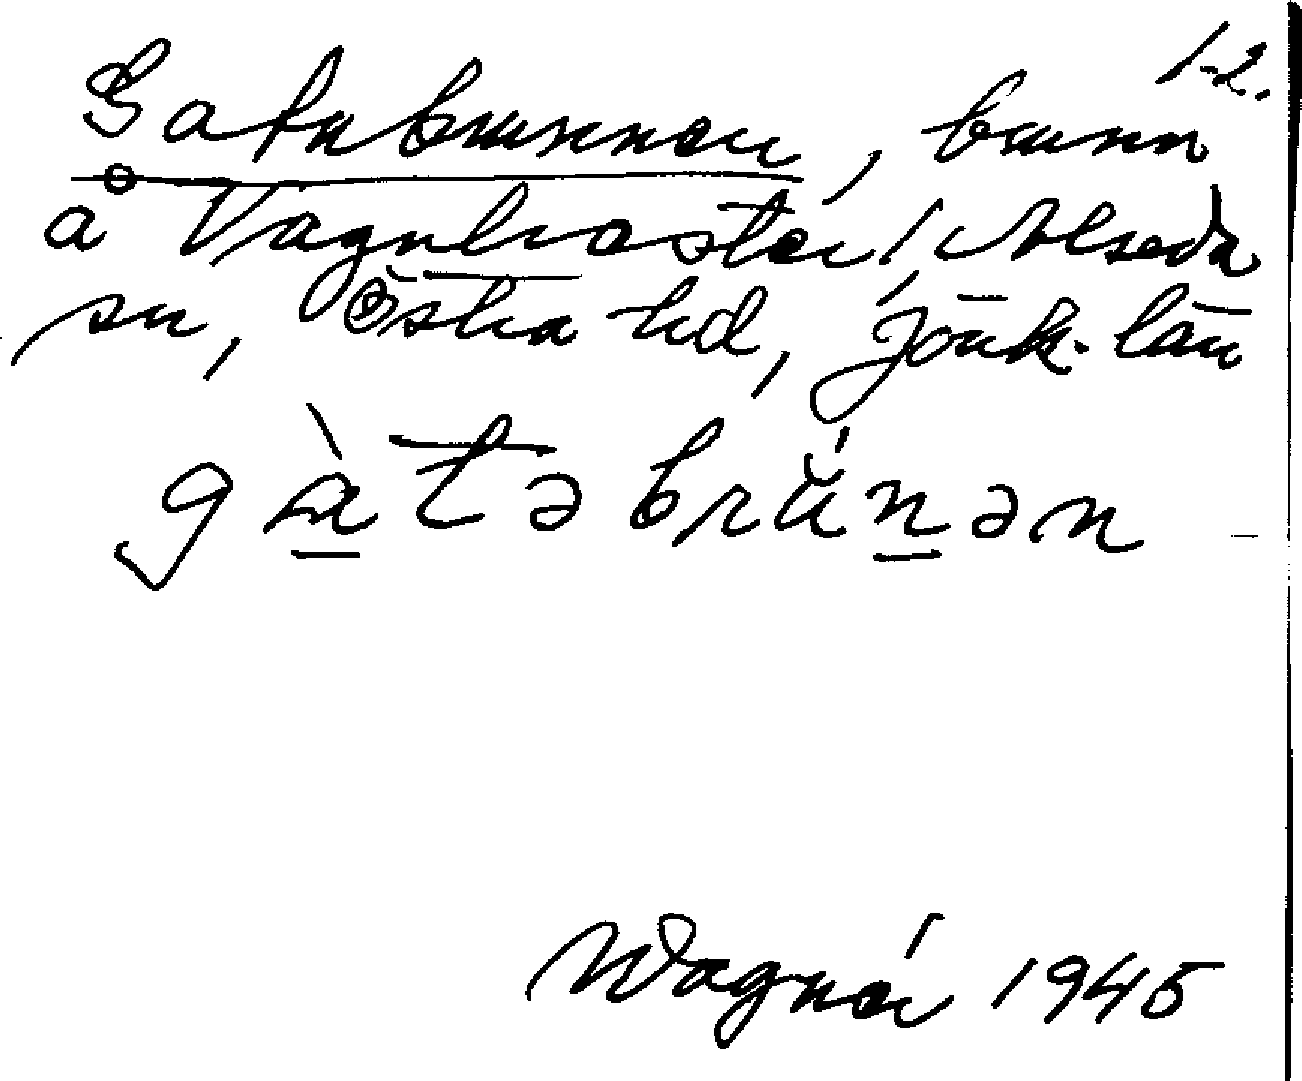 1-2.
Gatubrunnen, brunn
å Vagnhester i Alseda
sn, Östra hd, Jönk. län
gàtəbrŭ́nən
Wagnér 1945